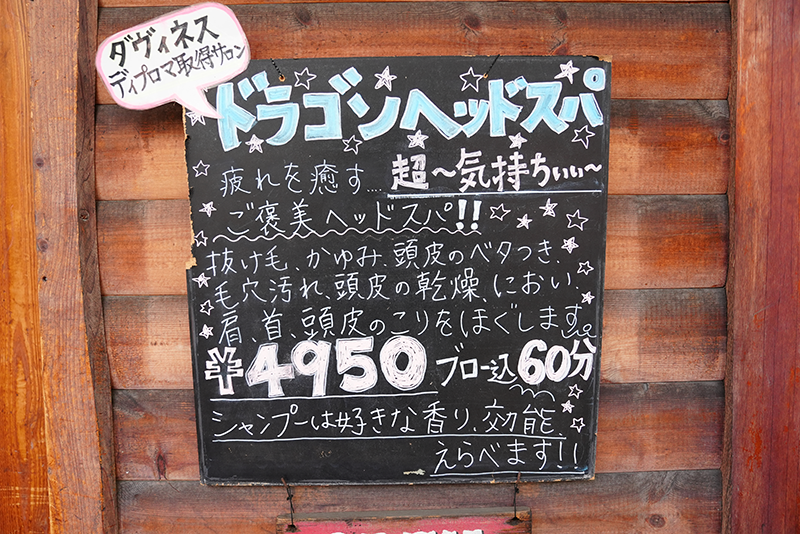 ダヴィネス
ディプロマ取得サロン
ドラゴンヘッドスパ
疲れを癒す... 超〜気持ちいい〜
ご褒美ヘッドスパ!!
抜け毛、かゆみ、頭皮のベタつき、
毛穴汚れ、頭皮の乾燥、におい、
肩、首、頭皮のこりをほぐします
¥4950 ブロー込60分
シャンプーは好きな香り、効能、
えらべます!!